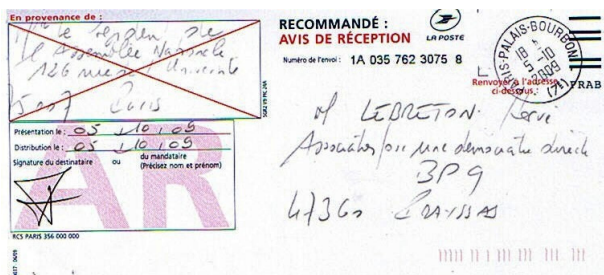 En provenance de :
le
l'Assemblée Nationale
126 rue de l'Université
75007 Paris
Présentation le : 05 10 09
Distribution le : 05 10 09
Signature du destinataire ou du mandataire
(Précisez nom et prénom)
AR
RCS PARIS 356 000 000
SGR2 V9 PIC 26A
RECOMMANDÉ :
AVIS DE RÉCEPTION
LA POSTE
Numéro de l'envoi : 1A 035 762 3075 8
PARIS-PALAIS-BOURBON
18
5-10
2009
(7E)
FRAB
Renvoyer à l'adresse
ci-dessous :
M LEBRETON Hervé
Association pour une démocratie directe
BP 9
47360 PRAYSSAS